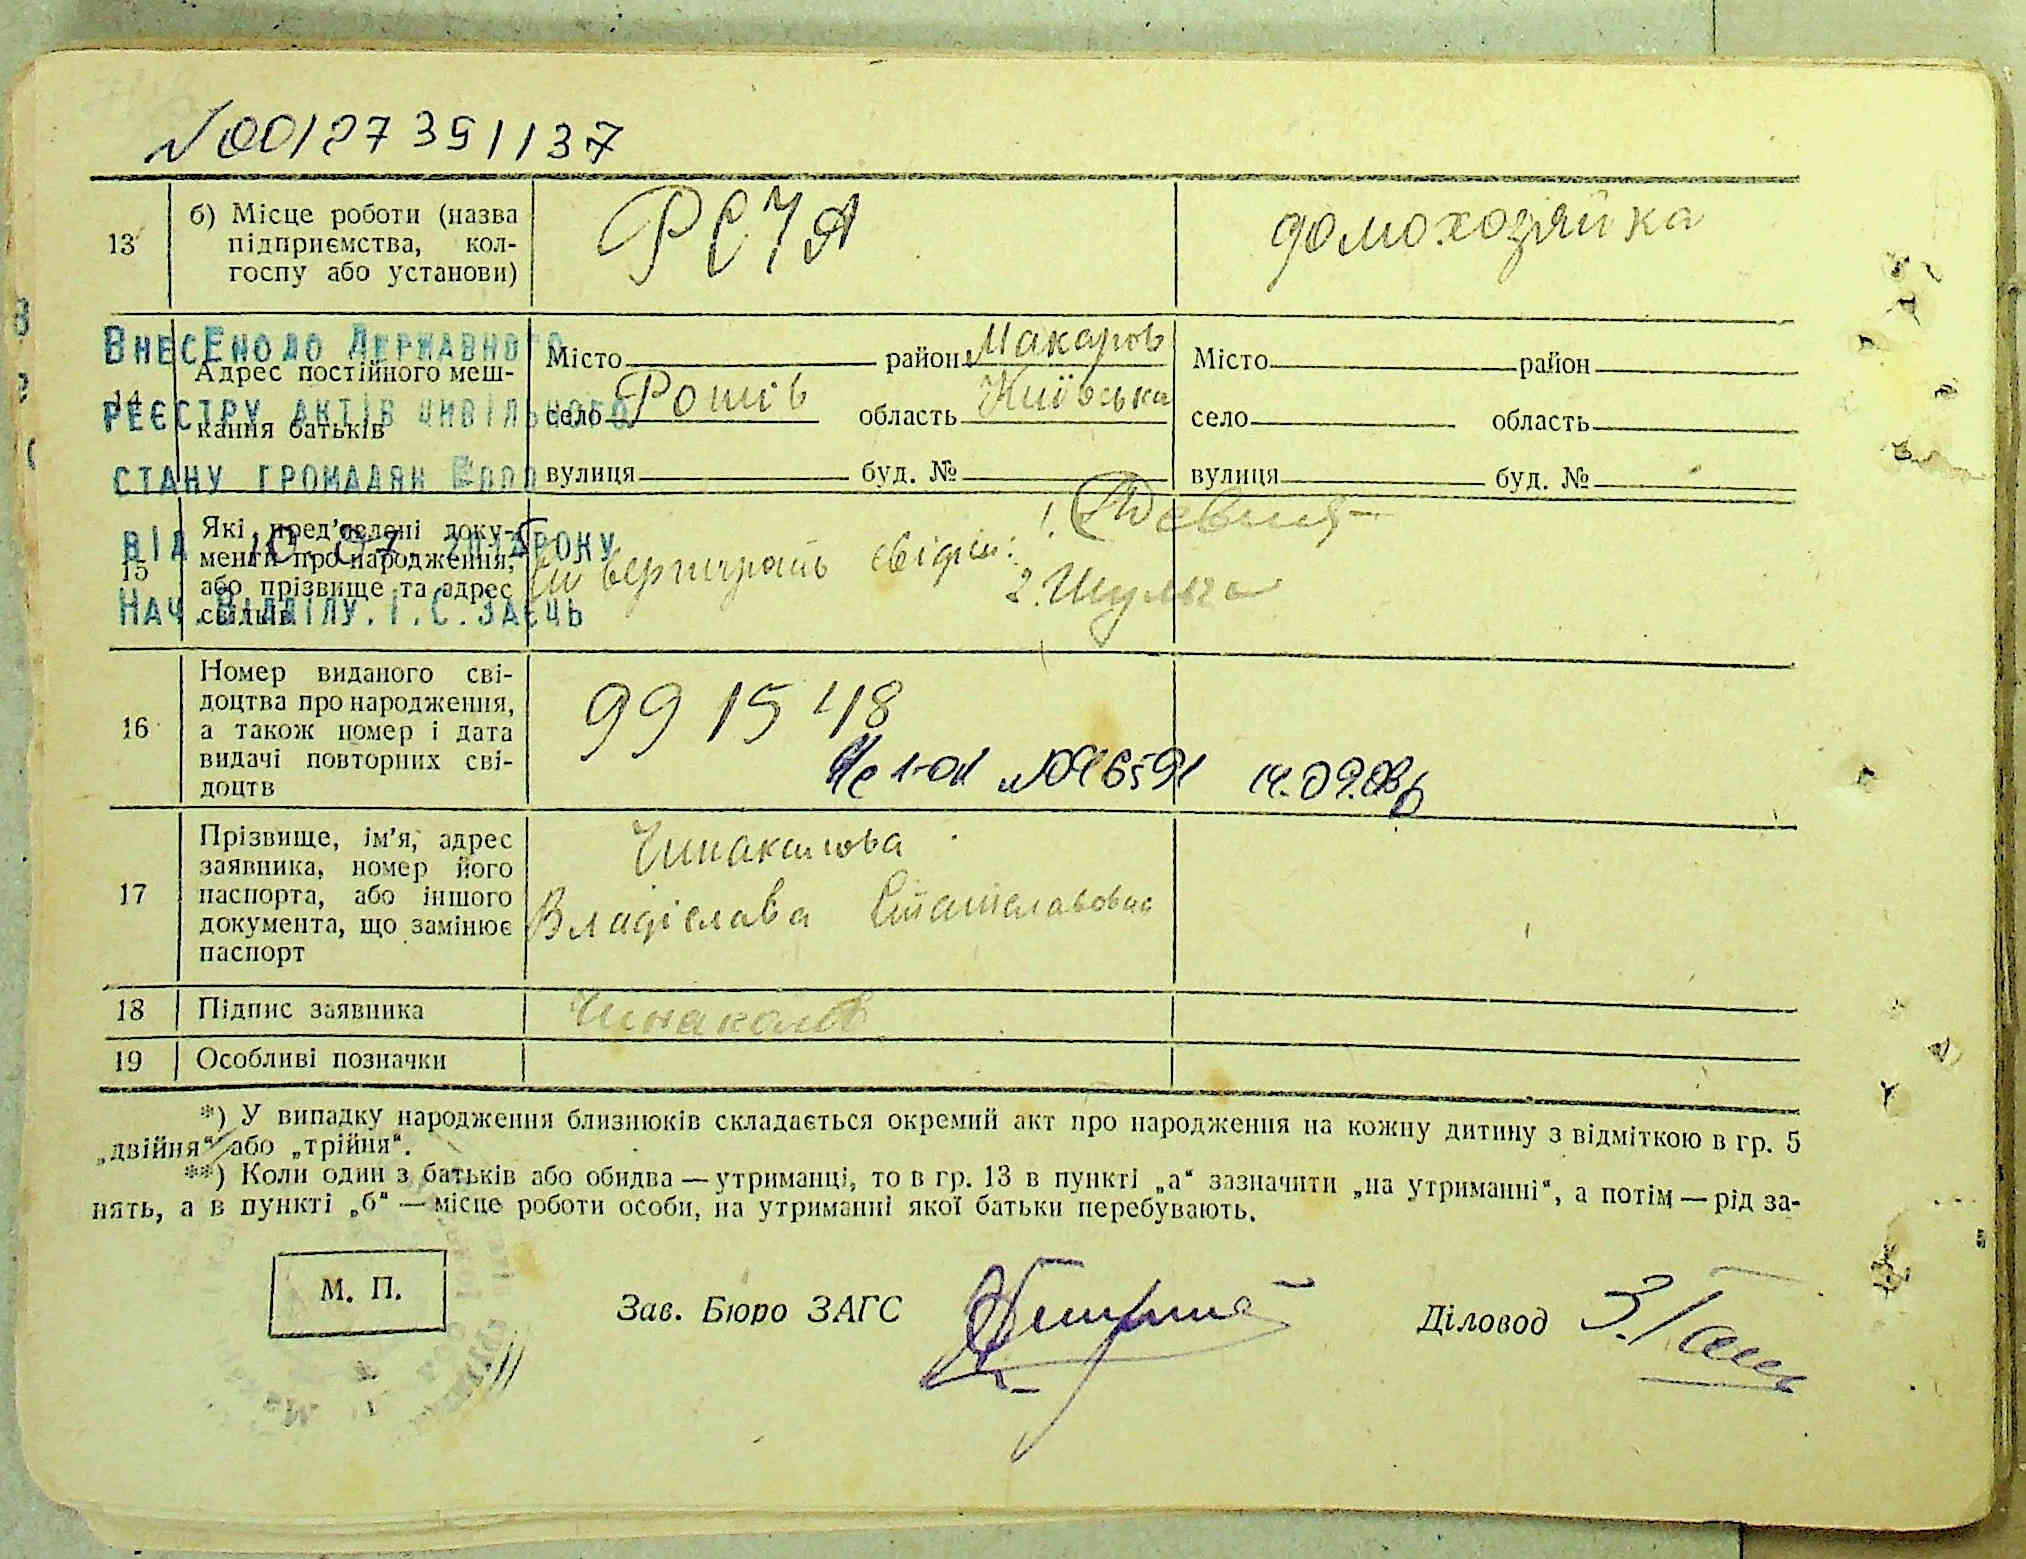 №00127351137
13
б) Місце роботи (назва
підприємства, кол-
госпу або установи)
РСЧА
домохозяйка
ВНЕСЕНО ДО ДЕРЖАВНОГО
РЕЄСТРУ АКТІВ ЦИВІЛЬНОГО
СТАНУ ГРОМАДЯН
ВІД РОКУ
НАЧ.ВІДДІЛУ.І.С.ЗАЄЦЬ
14
Адрес постійного меш-
кання батьків
Місто район Макаров
село область Київська
вулиця буд. №
Місто район
село область
вулиця буд. №
15
Які пред'явлені доку-
менти про народження,
або прізвище та адрес
свідків
2. Шульга
16
Номер виданого сві-
доцтва про народження,
а також номер і дата
видачі повторних сві-
доцтв
99 15 48
17
Прізвище, ім'я, адрес
заявника, номер його
паспорта, або іншого
документа, що замінює
паспорт
Чинакалова
Владіслава Станіславовна
18
Підпис заявника
19
Особливі позначки
*) У випадку народження близнюків складається окремий акт про народження на кожну дитину з відміткою в гр. 5
„двійня“ або „трійня“.
**) Коли один з батьків або обидва — утриманці, то в гр. 13 в пункті „а“ зазначити „на утриманні“, а потім — рід за-
нять, а в пункті „б“ — місце роботи особи, на утриманні якої батьки перебувають.
М. П.
Зав. Бюро ЗАГС
Діловод